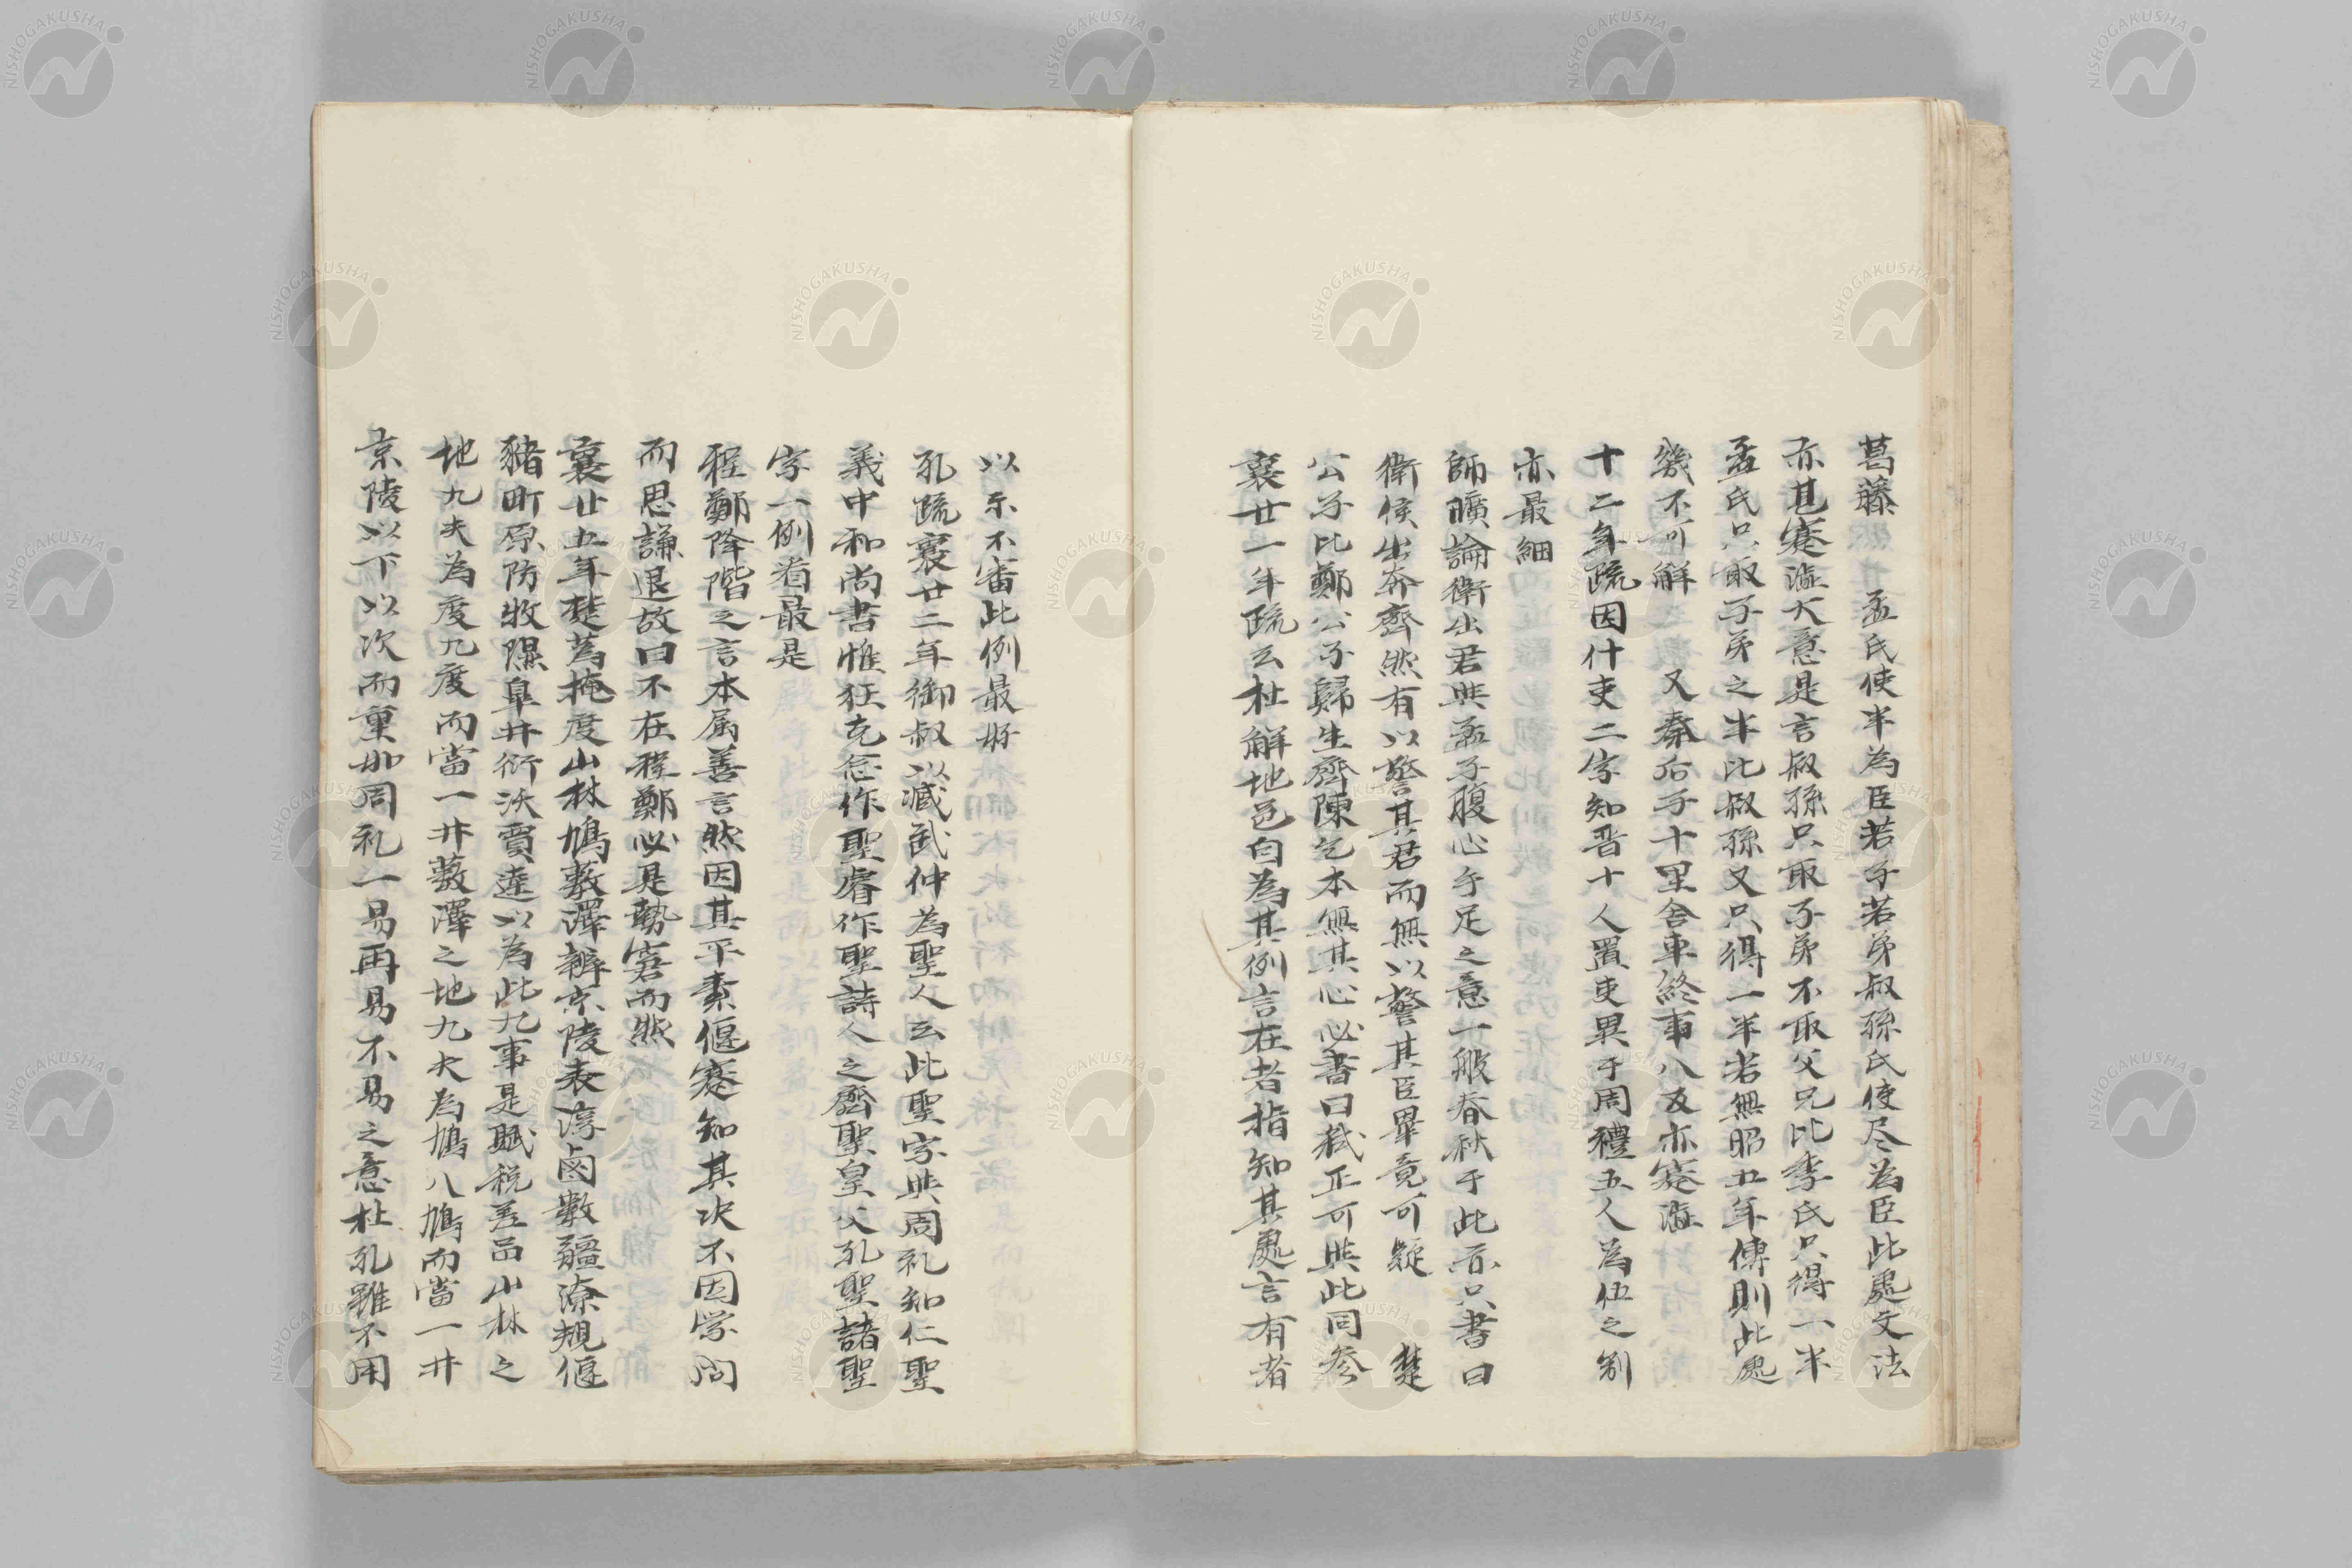 葛藤　孟氏使半為臣若子若弟叔孫氏使尽為臣此處文法
亦甚蹇澁大意是言叔孫只取子弟不取父兄比季氏只得一半
孟氏只取子弟之半比叔孫又只得一半若無昭五年傳則此處
幾不可解　又秦后子十里舎車終事八反亦蹇澁
十二年疏因什吏二字知晋十人置吏異于周禮五人為伍之别
亦最細
師曠論衛出君與孟子腹心手足之意一般春秋于此亦只書曰
衛侯出奔齊然有以警其君而無以警其臣畢竟可疑　楚
公子比鄭公子歸生齊陳乞本無其心必書曰弑正可與此同參
襄廿一年疏云杜解地邑自為其例言在者指知其處言有者
以示不審此例最好
孔疏襄廿二年御叔以臧武仲為聖人云此聖字與周礼知仁聖
義中和尚書惟狂克念作聖睿作聖詩人之齊聖皇父孔聖諸聖
字一例看最是
程鄭降階之言本属善言然因其平素偃蹇知其决不因学問
而思謙退故曰不在程鄭必是勢窘而然
襄廿五年楚蒍掩度山林鳩藪澤辨京陵表淳鹵數疆潦規偃
豬町原防牧隰皐井衍沃賈逵以為此九事是賦税差品山林之
地九夫為度九度而當一井藪澤之地九夫為鳩八鳩而當一井
京陵以下以次而重如周礼一易再易不易之意杜孔雖不用
NISHOGAKUSHA